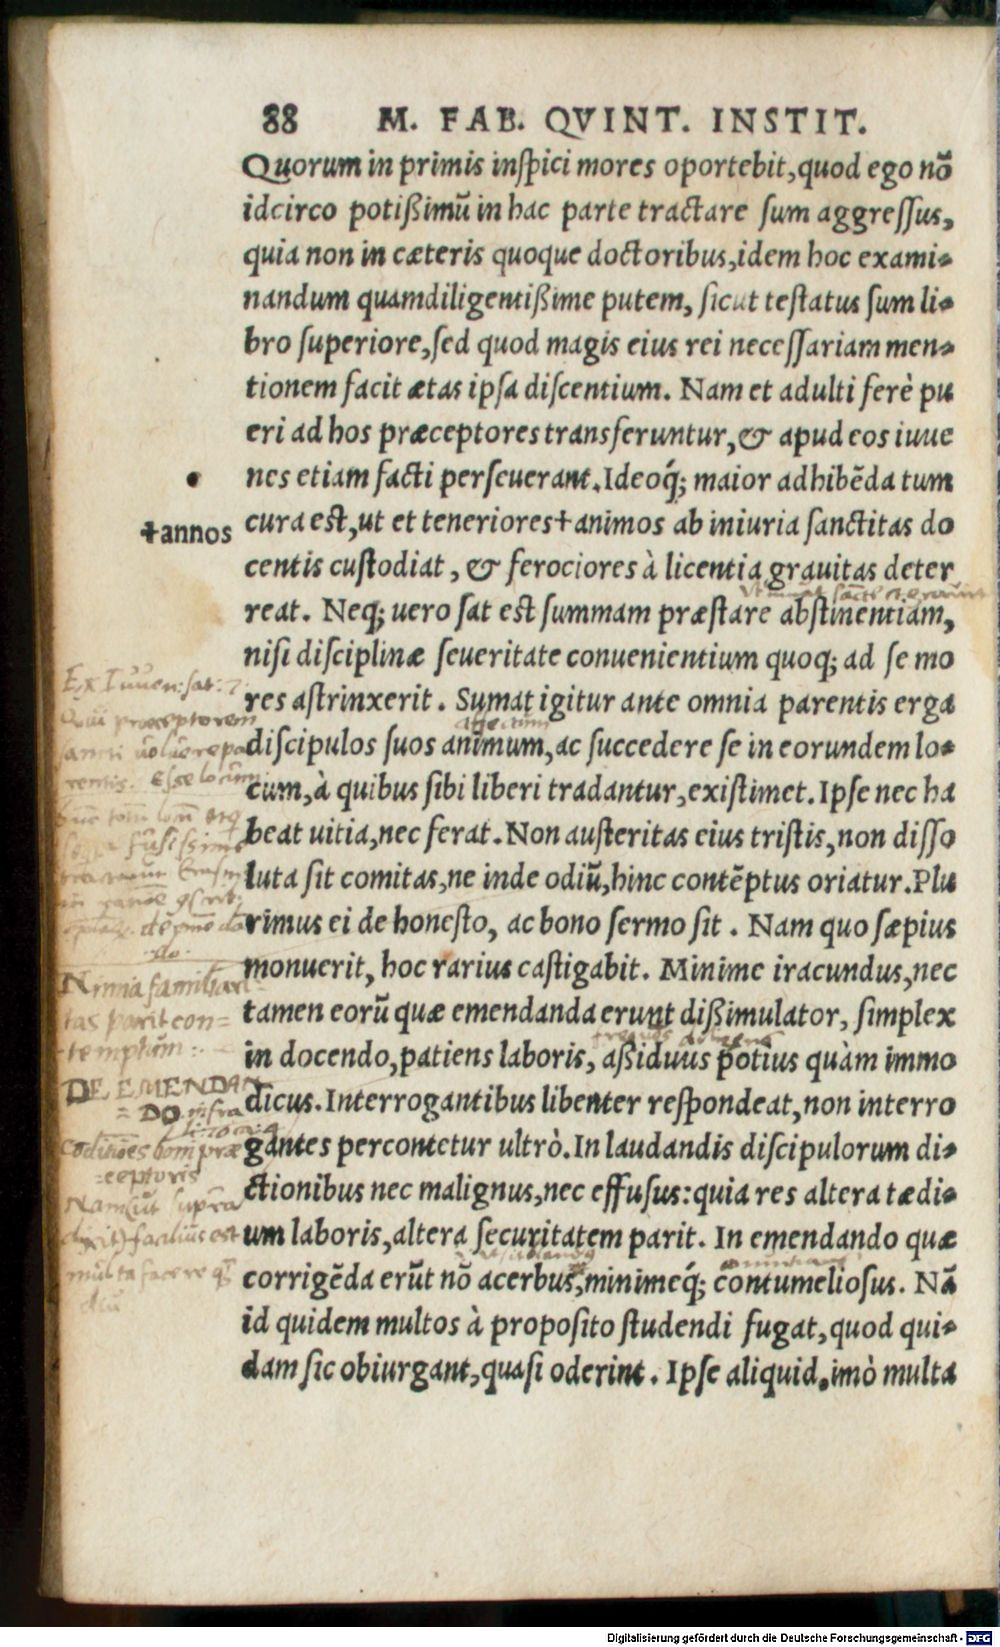 88 M. FAB. QVINT. INSTIT.
Quorum in primis inſpici mores oportebit, quod ego nõ
idcirco potißimũ in hac parte tractare ſum aggreſſus,
quia non in cæteris quoque doctoribus, idem hoc exami-
nandum quamdiligentißime putem, ſicut teſtatus ſum li-
bro ſuperiore, ſed quod magis eius rei neceſſariam men-
tionem facit ætas ipſa diſcentium. Nam et adulti ferè pu
eri ad hos præceptores transferuntur, & apud eos iuue
nes etiam facti perſeuerant. Ideoq́; maior adhibẽda tum
cura eſt, ut et teneriores † animos ab iniuria ſanctitas do
†annos
centis cuſtodiat, & ferociores à licentia grauitas deter
reat. Neq; uero ſat eſt ſummam præſtare abſtinentiam,
niſi diſciplinæ ſeueritate conuenientium quoq; ad ſe mo
res aſtrinxerit. Sumat igitur ante omnia parentis erga
diſcipulos ſuos animum, ac ſuccedere ſe in eorundem lo-
cum, à quibus ſibi liberi tradantur, exiſtimet. Ipſe nec ha
beat uitia, nec ferat. Non auſteritas eius triſtis, non diſſo
luta ſit comitas, ne inde odiũ, hinc contẽptus oriatur. Plu
rimus ei de honeſto, ac bono ſermo ſit. Nam quo ſæpius
monuerit, hoc rarius caſtigabit. Minime iracundus, nec
tamen eorũ quæ emendanda erunt dißimulator, ſimplex
in docendo, patiens laboris, aßiduus potius quàm immo
dicus. Interrogantibus libenter reſpondeat, non interro
gantes percontetur ultrò. In laudandis diſcipulorum di-
ctionibus nec malignus, nec effuſus: quia res altera tædi-
um laboris, altera ſecuritatem parit. In emendando quæ
corrigẽda erũt nõ acerbus, minimeq́; contumelioſus. Nã
id quidem multos à propoſito ſtudendi fugat, quod qui-
dam ſic obiurgant, quaſi oderint. Ipſe aliquid, imò multa
Ex Iuuen: sat: 7.
Qui præceptorem
sancti uoluere pa
rentis. Esse locum
Nimia familiari
tas parit con=
temptum:
DE EMENDAN
=DO infra
bom præ
=ceptoris
supra
dixit) facilius est
multa facere q̃
diu
Digitalisierung gefördert durch die Deutsche Forschungsgemeinschaft - DFG